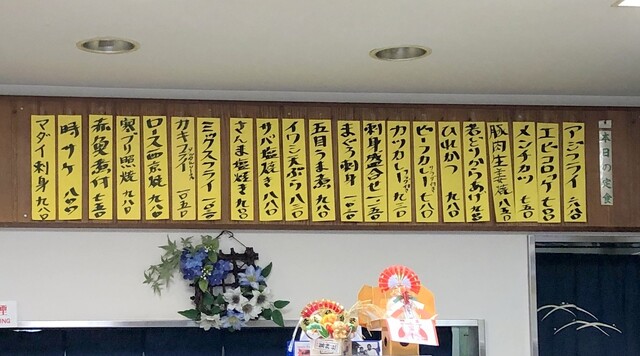 本日の定食
アジフライ 六八〇
エビコロッケ 七八〇
メンチカツ 七五〇
豚肉生姜焼 八五〇
若どりからあげ 九〇〇
ひれかつ 九八〇
ビーフカレー 七八〇
カツカレー 九八〇
刺身盛合せ 一二五〇
まぐろ刺身 一〇〇〇
五目うま煮 九八〇
イワシ天ぷら 八三〇
サバ塩焼き 八八〇
さんま塩焼き 九八〇
ミックスフライ
カキフライ 一〇五〇
ロース西京焼 九八〇
寒ブリ照焼 九八〇
赤魚煮付 七五〇
時サケ 八〇〇
マダイ刺身 九八〇